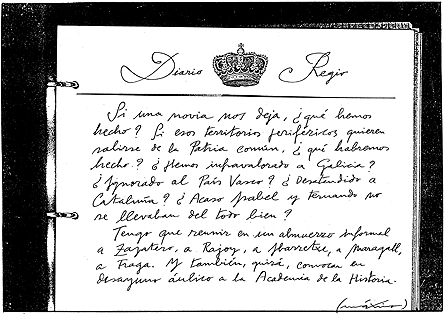 Diario Regio
Si una novia nos deja, ¿qué hemos
hecho? Si esos territorios periféricos quieren
salirse de la Patria común, ¿qué habremos
hecho? ¿Hemos infravalorado a Galicia?
¿Ignorado al País Vasco? ¿Desatendido a
Cataluña? ¿Acaso Isabel y Fernando no
se llevaban del todo bien?
Tengo que reunir en un almuerzo informal
a Zapatero, a Rajoy, a Ibarretxe, a Maragall,
a Fraga. Y también, quizá, convocar en
desayuno áulico a la Academia de la Historia.
(máximo)